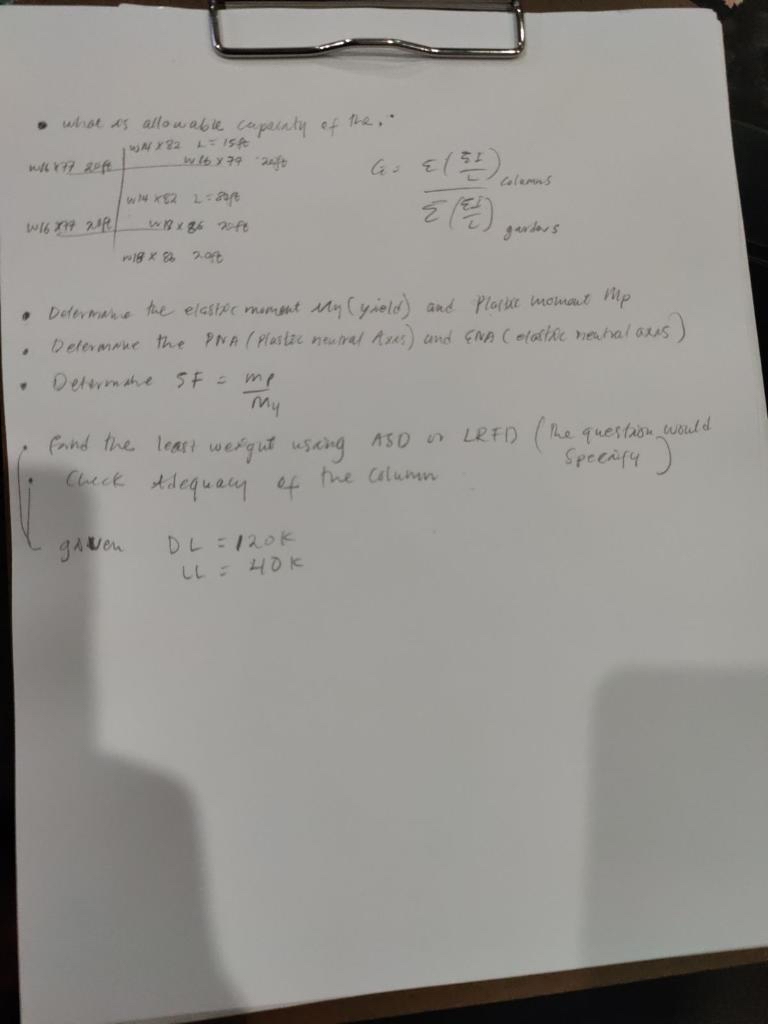 • what is allowable capacity of the.
W14 x 82 L = 15ft
W16 x 77 20ft W16 x 77 20ft
W14 x 82 L =
W16 x 77 20ft W18 x 86 20ft
W18 x 86 20ft
G = Σ(EI/L) columns
Σ(EI/L)
• Determine the elastic moment My (yield) and Plastic moment Mp
• Determine the PNA (Plastic neutral Axis) and ENA (elastic neutral axis)
• Determine SF = mp/My
• find the least weight using ASD or LRFD (The question would specify)
• Check Adequacy of the column
given DL = 120K
LL = 40K